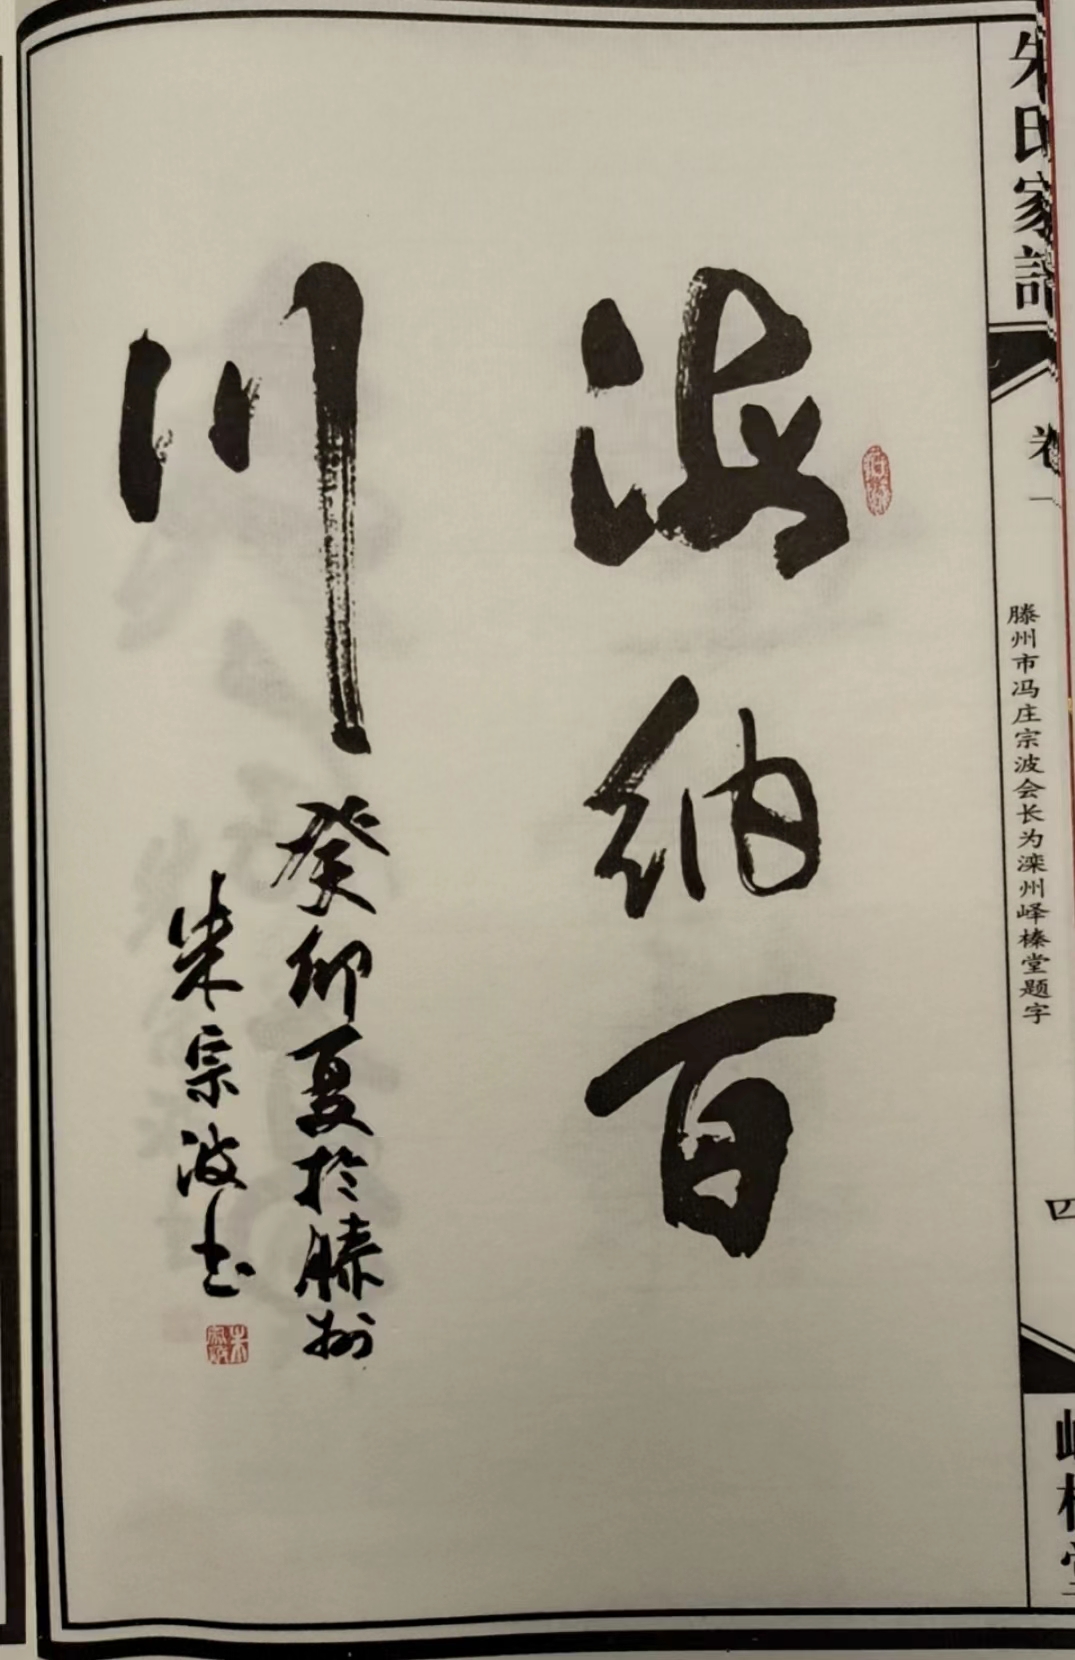 朱氏家譜
卷一
滕州市冯庄宗波会长为滦州峄榛堂题字
四
峄榛堂
海纳百
川
癸卯夏於滕州
朱宗波书